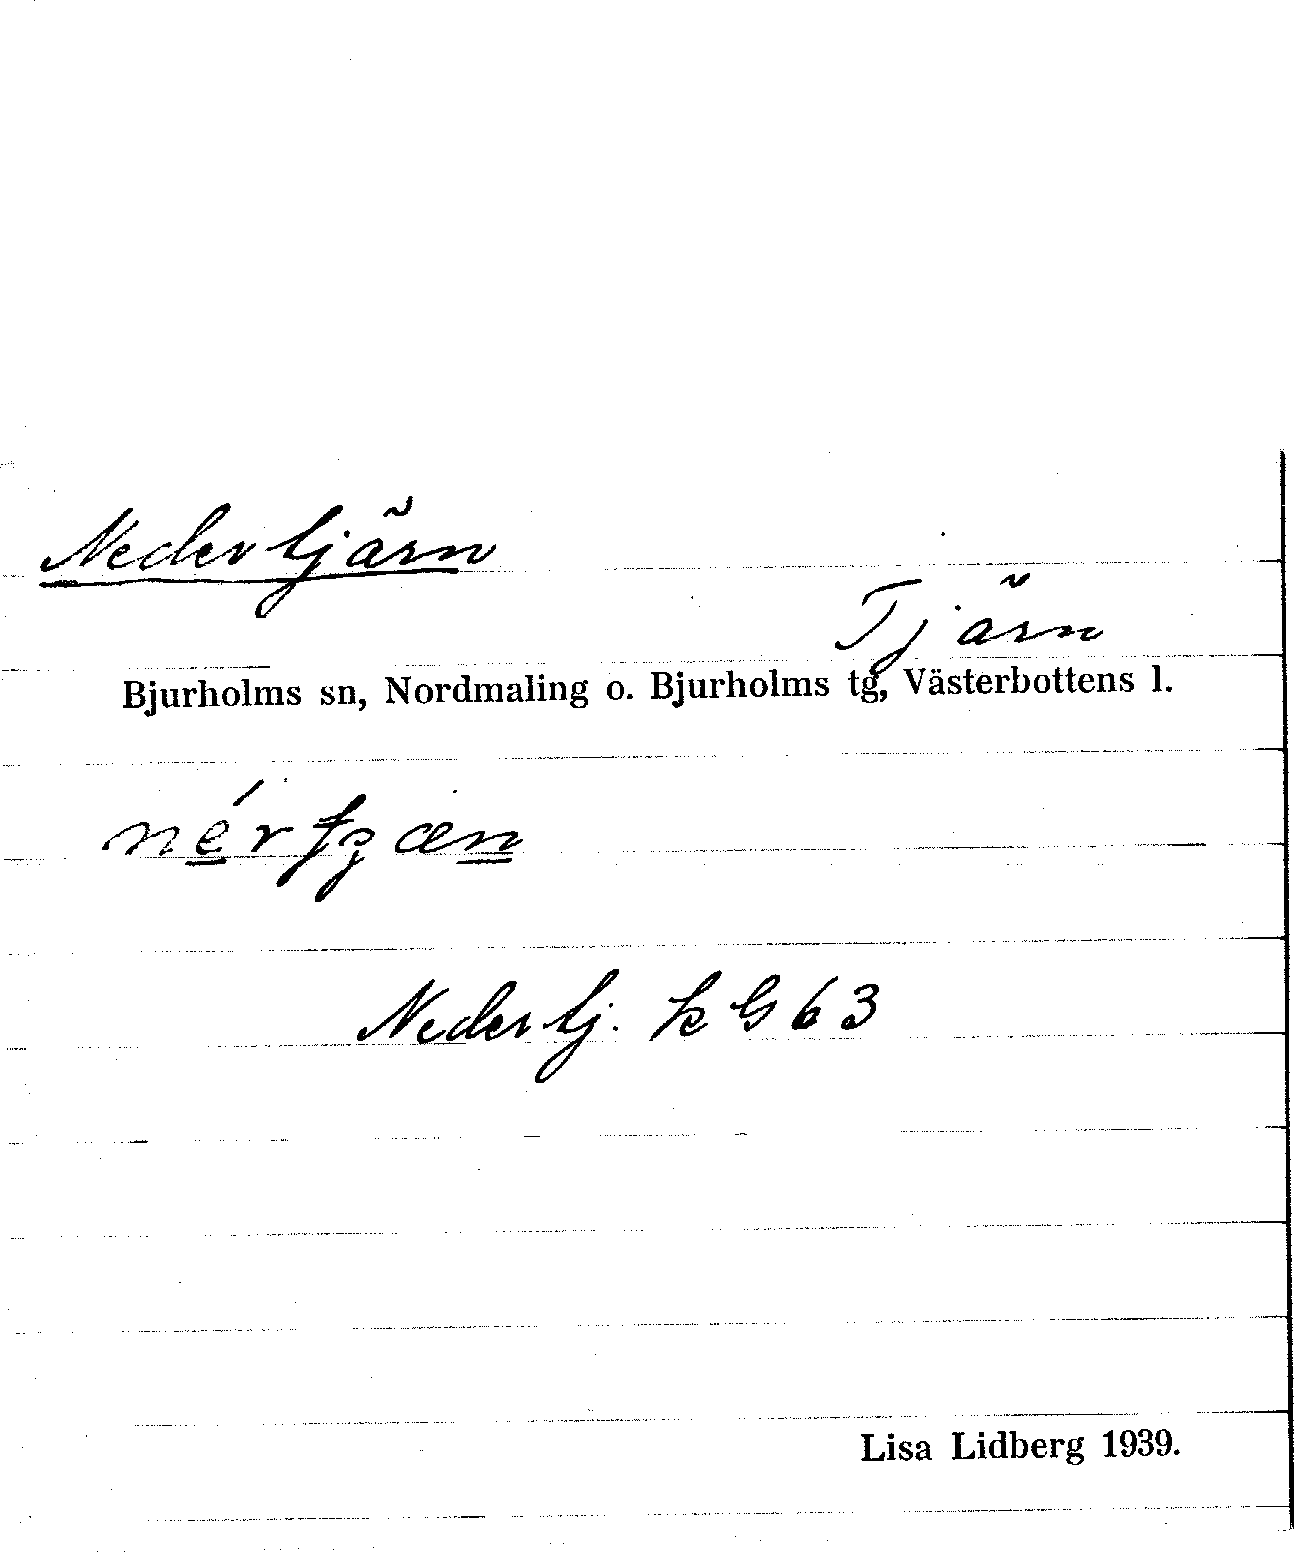 Nedertjärn
Tjärn
Bjurholms sn, Nordmaling o. Bjurholms tg, Västerbottens l.
Nedertj. k G 63
Lisa Lidberg 1939.